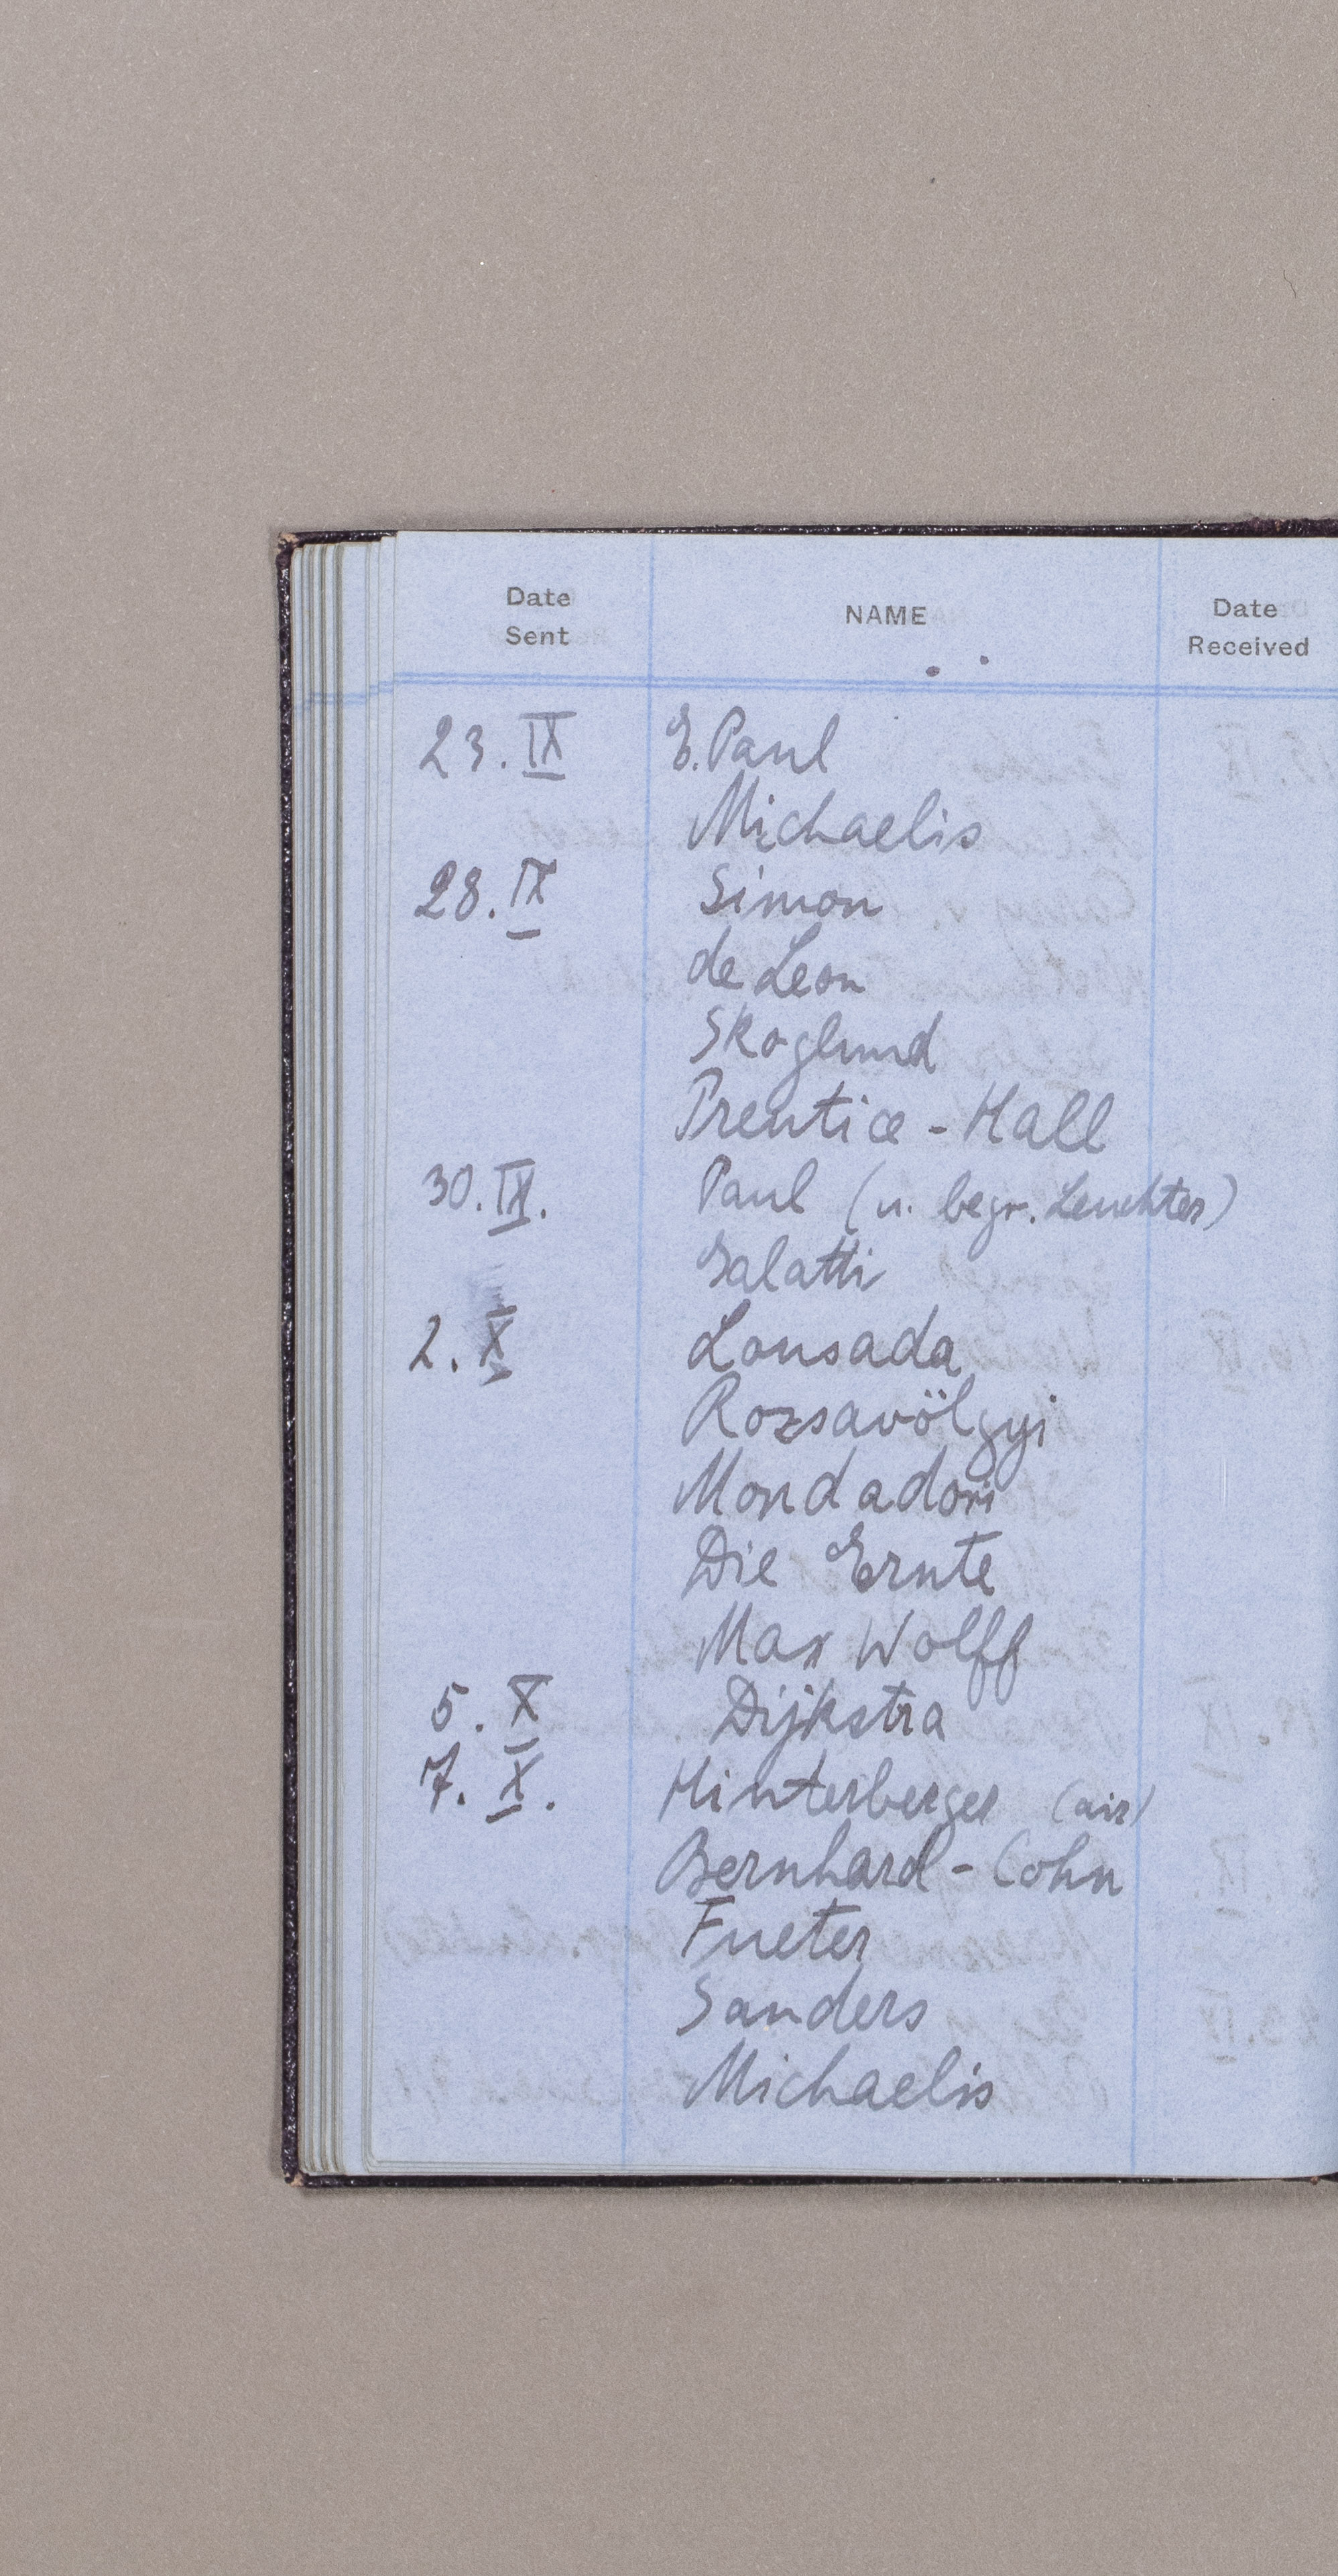 Date Sent NAME Date Received
23. IX E. Paul
Michaelis
28. IX Simon
de Leon
Skoglund
Prentice - Hall
30. IX. Paul (u. begr. Leuchter)
Galatti
2. X Lousada
Rozsavölgyi
Mondadori
Die Ernte
Max Wolff
5. X Dijkstra
7. X. Hinterberger (air)
Bernhard - Cohn
Fueter
Sanders
Michaelis